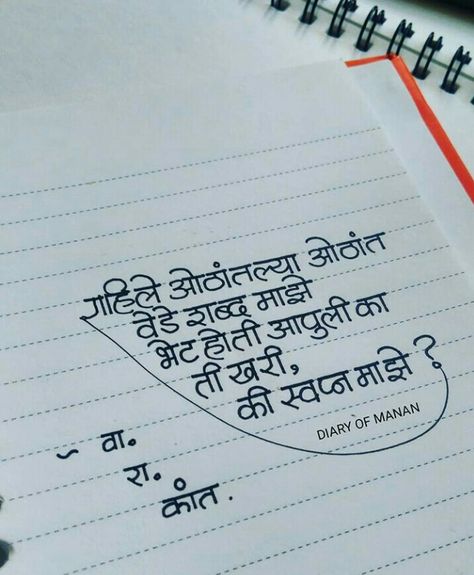 राहिले ओठांतल्या ओठांत
वेडे शब्द माझे
भेट होती आपुली का
ती खरी,
की स्वप्न माझे?
DIARY OF MANAN
~ वा.
रा.
कांत.